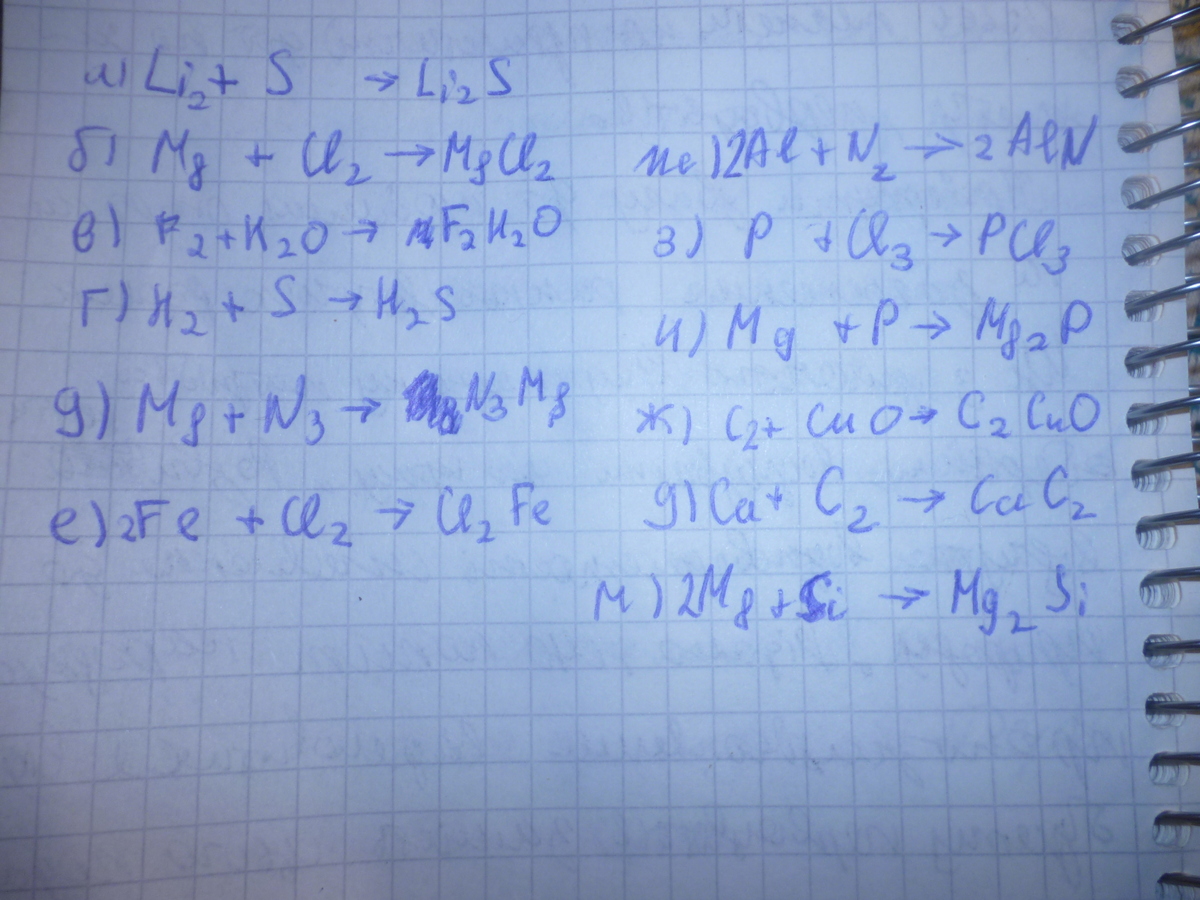 а) Li₂ + S → Li₂S
б) Mg + Cl₂ → MgCl₂
в) F₂ + H₂O → F₂H₂O
г) H₂ + S → H₂S
д) Mg + N₃ → N₃Mg
е) 2Fe + Cl₂ → Cl₂Fe
ж) 2Al + N₂ → 2AlN
з) P + Cl₃ → PCl₃
и) Mg + P → Mg₂P
ж) C₂ + CuO → C₂CuO
д) Ca + C₂ → CaC₂
м) 2Mg + Si → Mg₂Si